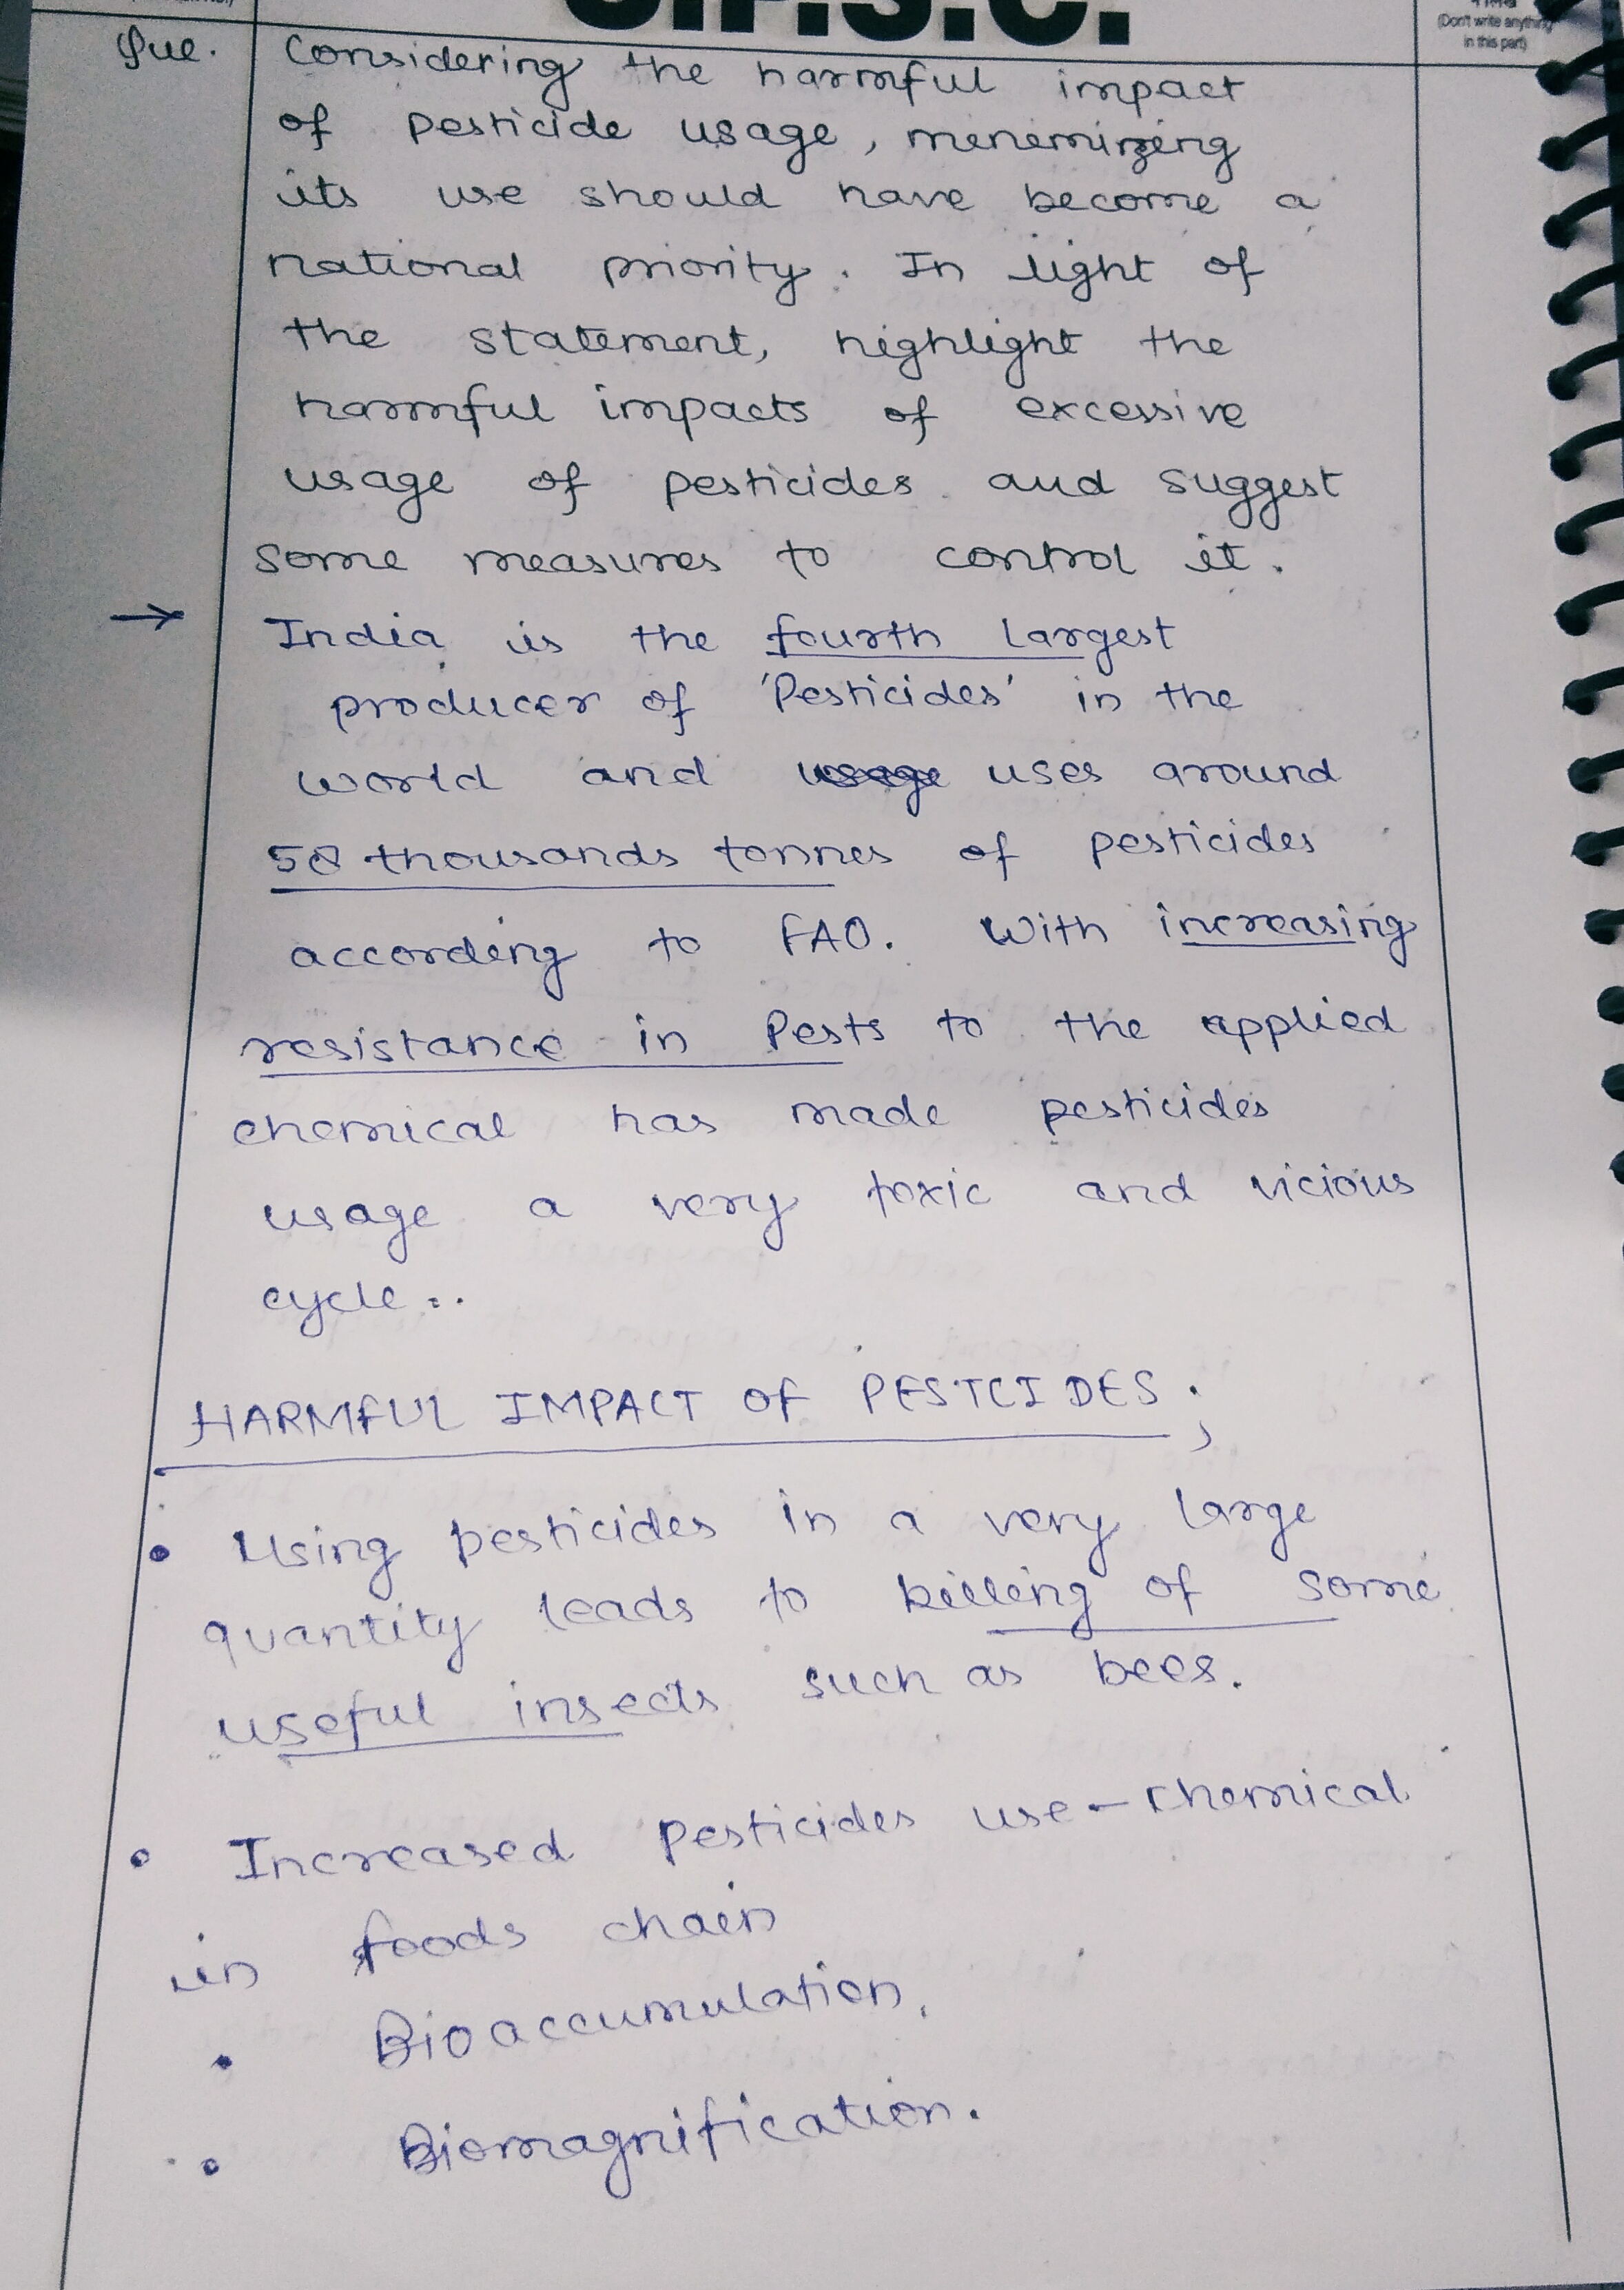 U.P.S.C.
(Don't write anything
in this part)
Que. Considering the harmful impact
of pesticide usage, menemizeng
its use should have become a
national priority. In light of
the statement, highlight the
harmful impacts of excessive
usage of pesticides and suggest
some measures to control it.
→ India is the fourth largest
producer of 'Pesticides' in the
world and usage uses around
58 thousands tonnes of pesticides
according to FAO. With increasing
resistance in Pests to the applied
chemical has made pesticides
usage a very toxic and vicious
cycle..
HARMFUL IMPACT OF PESTCIDES;
• Using pesticides in a very large
quantity leads to killing of some
useful insects such as bees.
• Increased pesticides use - chemical
in foods chain
• Bioaccumulation.
• Biomagnification.